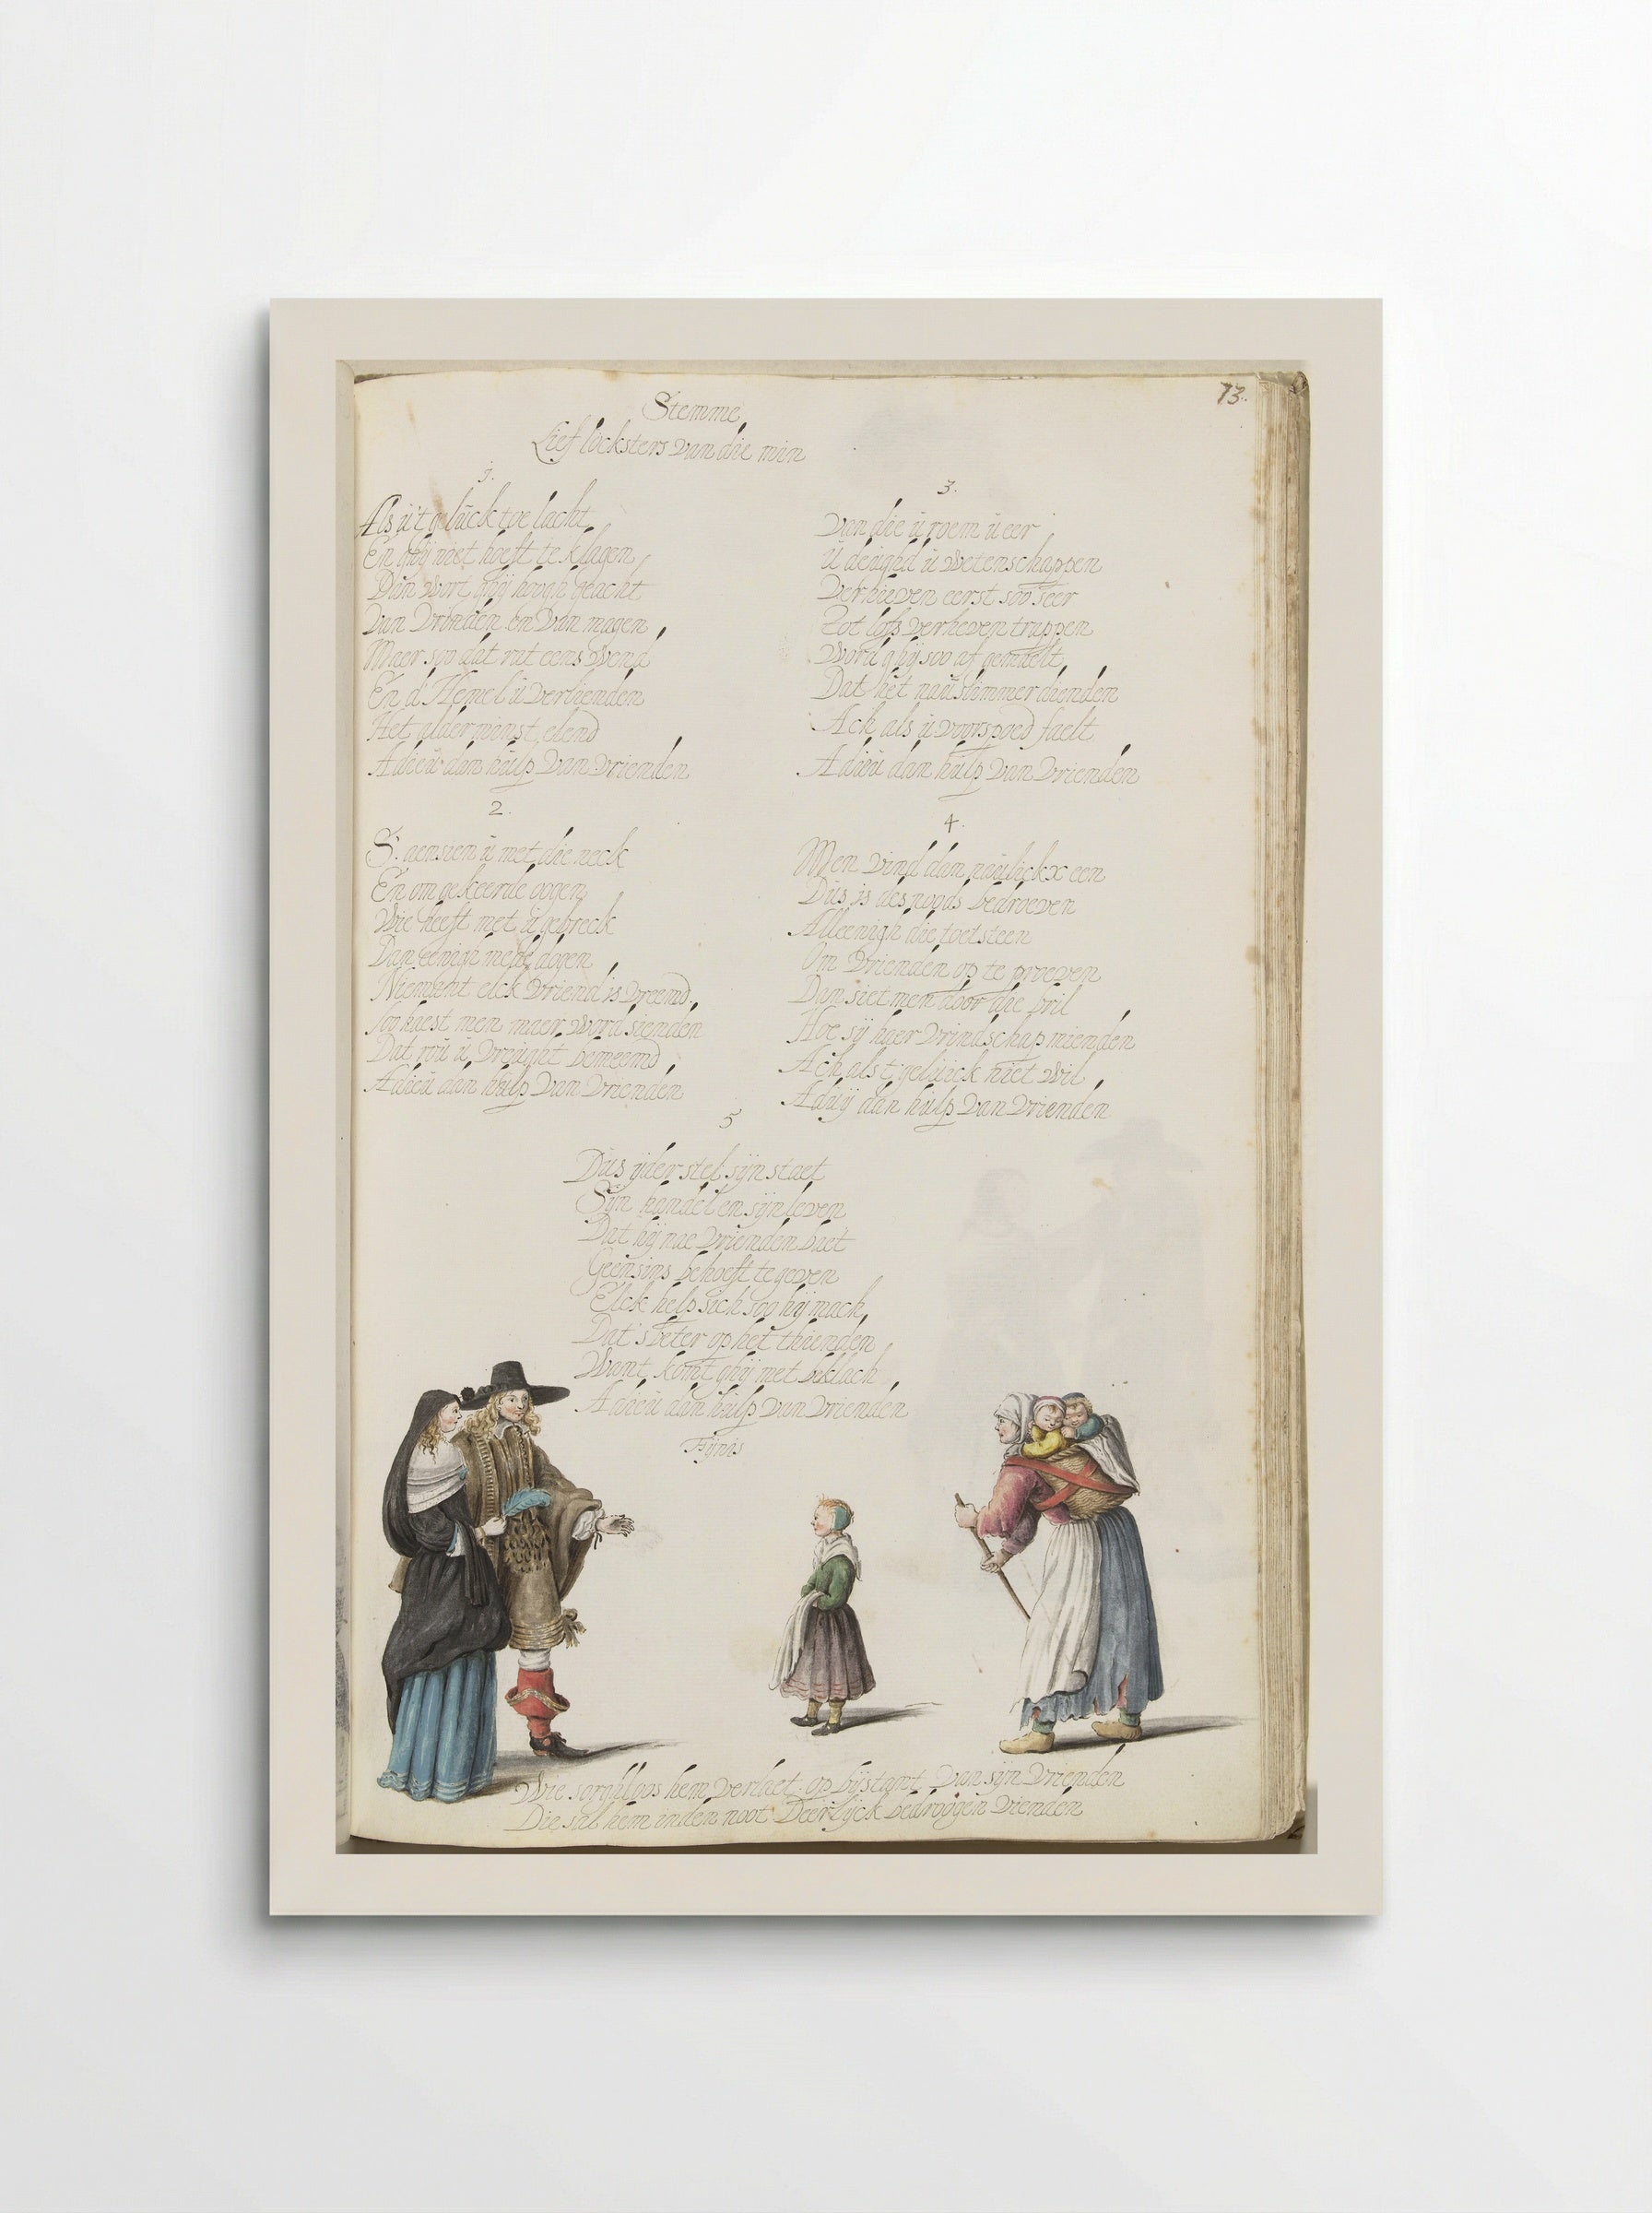 73.
Stemme
Lief locksters van die min
1.
Als u't geluck toe lacht
En ghij niet hoeft te klagen
Dan wort ghij hoogh geacht
Van Vrinden en Van magen
Maer soo dat rat eens Wend
En d'Hemel u verlienden
Het aldermonst elend
Adieu dan hulp Van Vrienden
2.
S' aensien u met die neck
En om gekeerde oogen
Wie heeft met u gebreck
Dan eenigh mede dogen
Niemant elck Vriend is Vreemd
soo haest men maer Word sienden
Dat rou u Vreught beneemd
Adieu dan hulp Van Vrienden
3.
Van die u roem u eer
u deughd u Wetenschappen
Verhieven eerst soo seer
Tot lofs verheven trappen
Word ghij soo af gemaelt
Dat het nau slimmer dienden
Ack als u voorspoed faelt
Adieu dan hulp Van Vrienden
4.
Men vind dan naulickx een
Dus is des noods bedroeven
Alleenigh die toetsteen
Om Vrienden op te proeven
Dan siet men door die bril
Hoe sij haer Vrindschap mienden
Ack als t geluick niet Wil
Aduij dan hulp Van Vrienden
5
Dus ijder stel sijn staet
Sijn handel en sijn leven
Dat hij nae Vrienden baet
Geensins behoeft te geven
Elck help sich soo hij mach
Dat's beter op het thienden
Want komt ghij met beklach
Adieu dan hulp Van Vrienden
Fijnis
Wie sorghloos hem verliet op bijstant Van sijn Vrienden
Die sal hem inden noot Deerlijck bedroogen Vienden